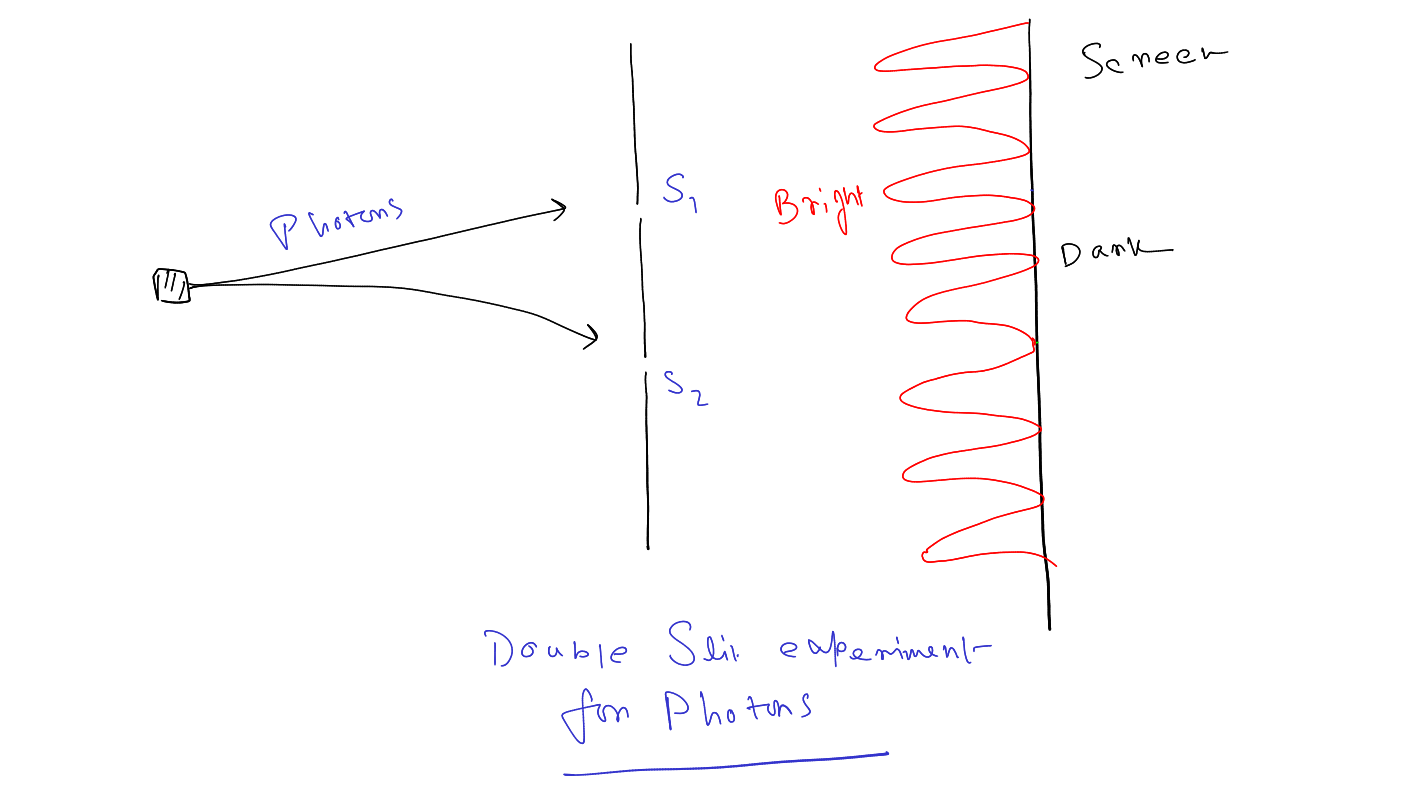 Screen
Photons
S1
Bright
Dark
S2
Double Slit experiment
for Photons